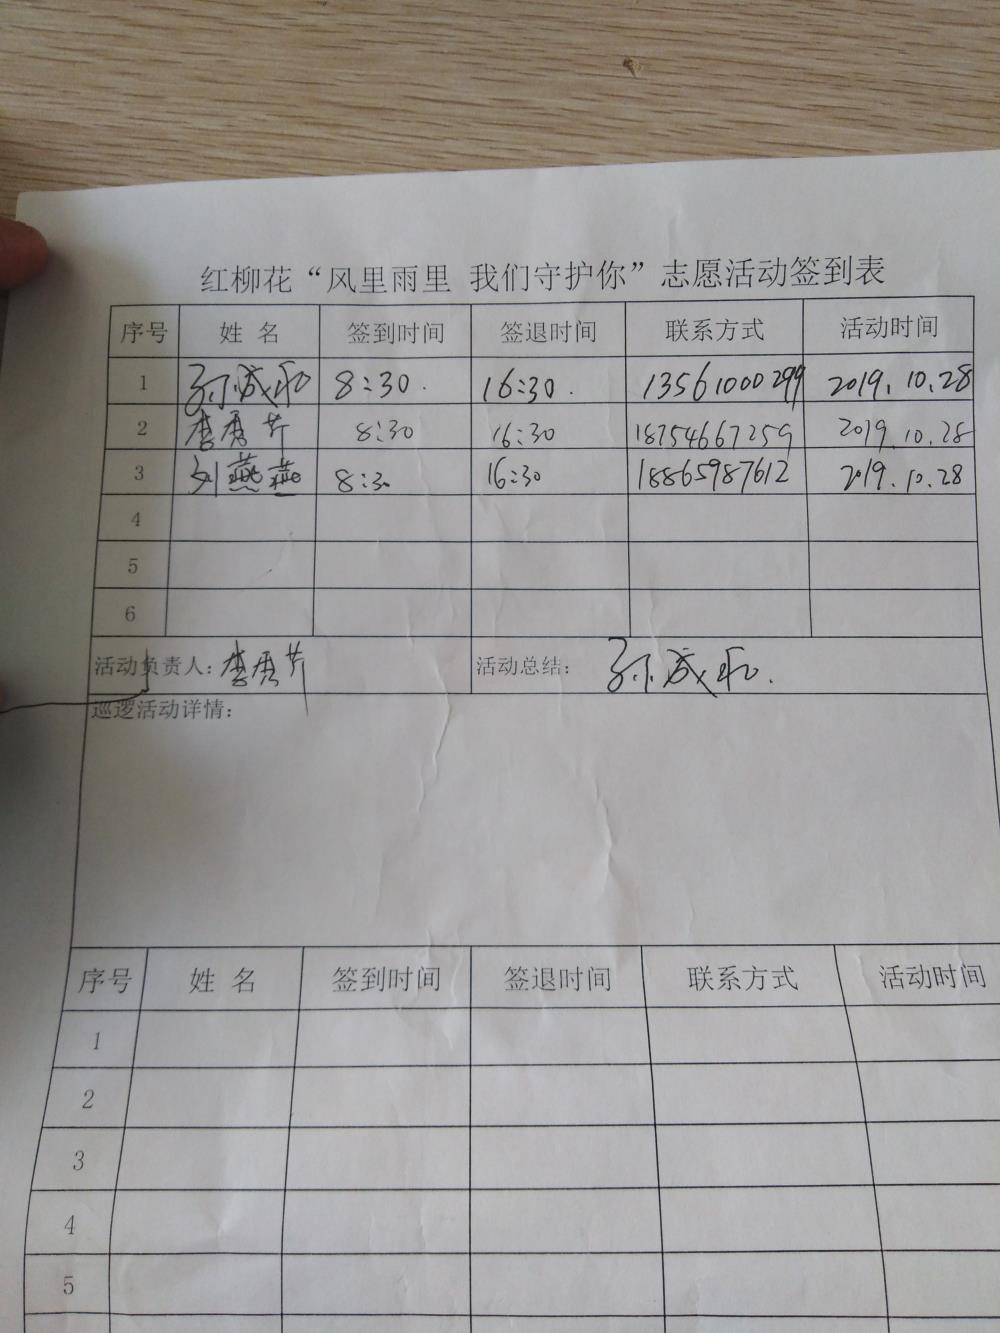 红柳花“风里雨里 我们守护你”志愿活动签到表
序号 姓 名 签到时间 签退时间 联系方式 活动时间
1 孙成和 8:30. 16:30. 13561000299 2019.10.28
2 李秀芹 8:30 16:30 18754667259 2019.10.28
3 刘燕燕 8:30 16:30 18865987612 2019.10.28
4
5
6
活动负责人：李秀芹 活动总结： 孙成和.
巡逻活动详情：
序号 姓 名 签到时间 签退时间 联系方式 活动时间
1
2
3
4
5